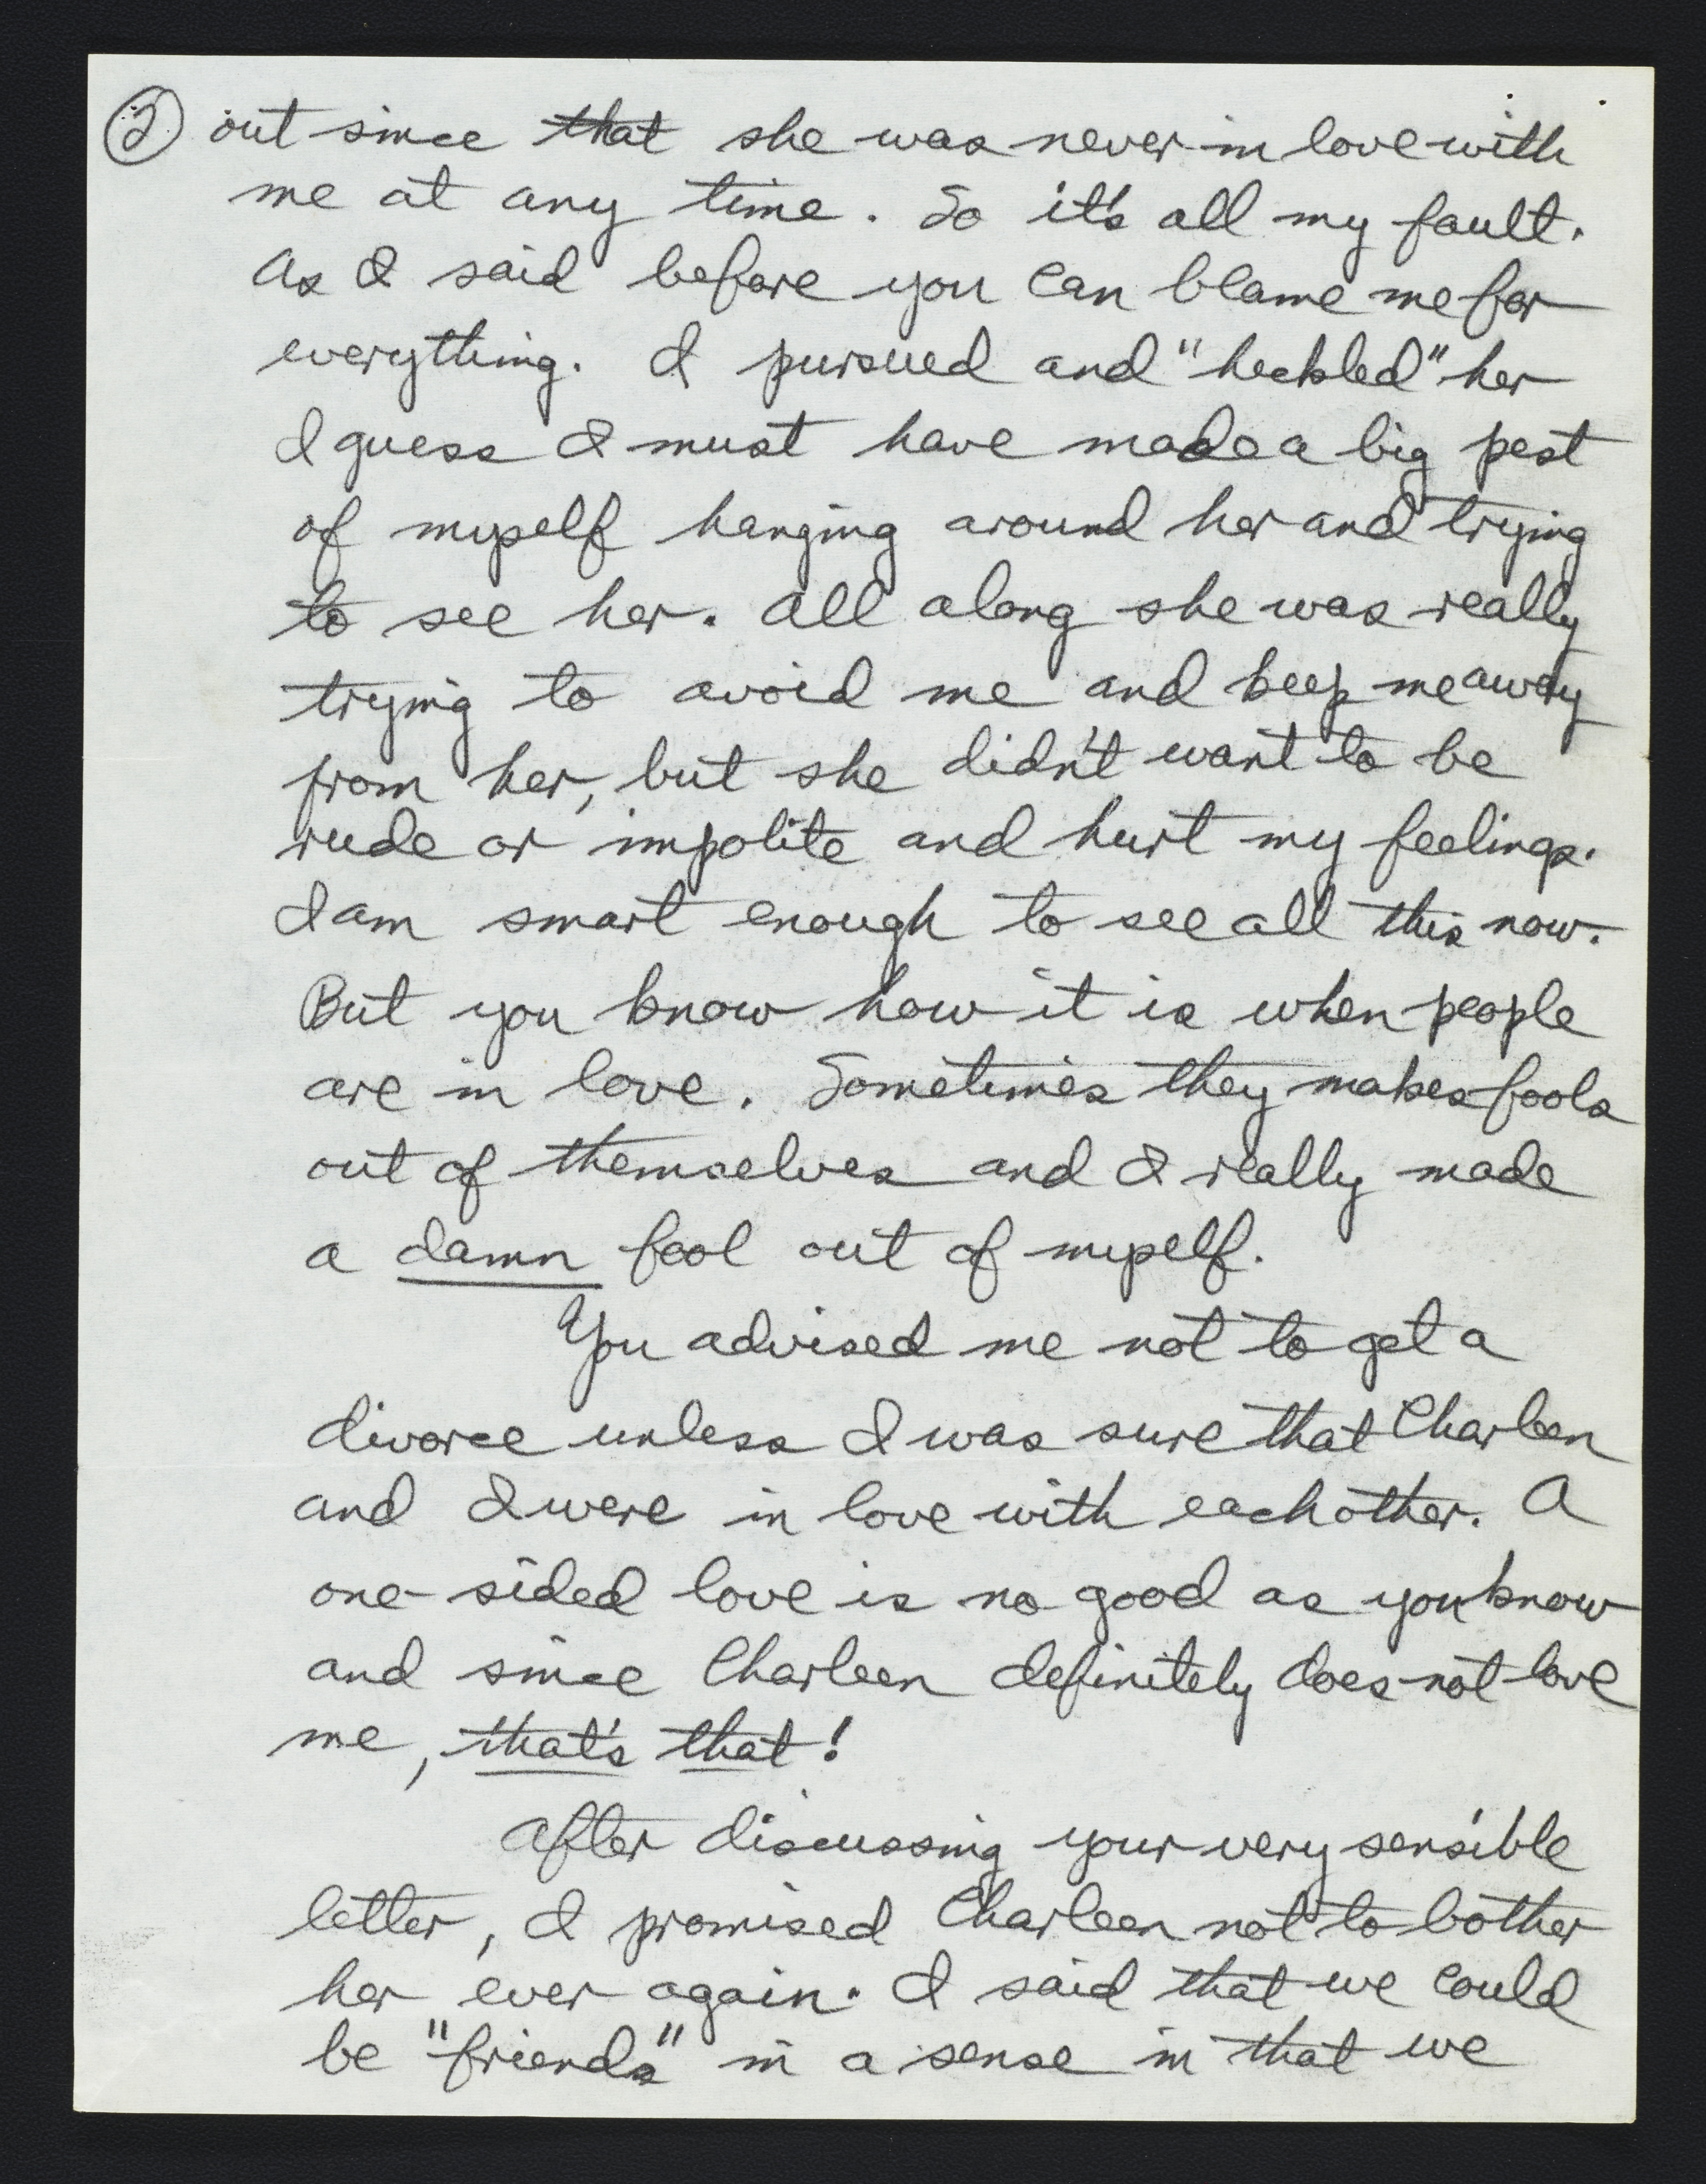 ② out since that she was never in love with
me at any time. So it's all my fault.
As I said before you can blame me for
everything. I pursued and "heckled" her
I guess I must have made a big pest
of myself hanging around her and trying
to see her. All along she was really
trying to avoid me and keep me away
from her, but she didn't want to be
rude or impolite and hurt my feelings.
I am smart enough to see all this now.
But you know how it is when people
are in love. Sometimes they makes fools
out of themselves and I really made
a damn fool out of myself.
You advised me not to get a
divorce unless I was sure that Charleen
and I were in love with eachother. A
one-sided love is no good as you know
and since Charleen definitely does not love
me, that's that!
After discussing your very sensible
letter, I promised Charleen not to bother
her ever again. I said that we could
be "friends" in a sense in that we